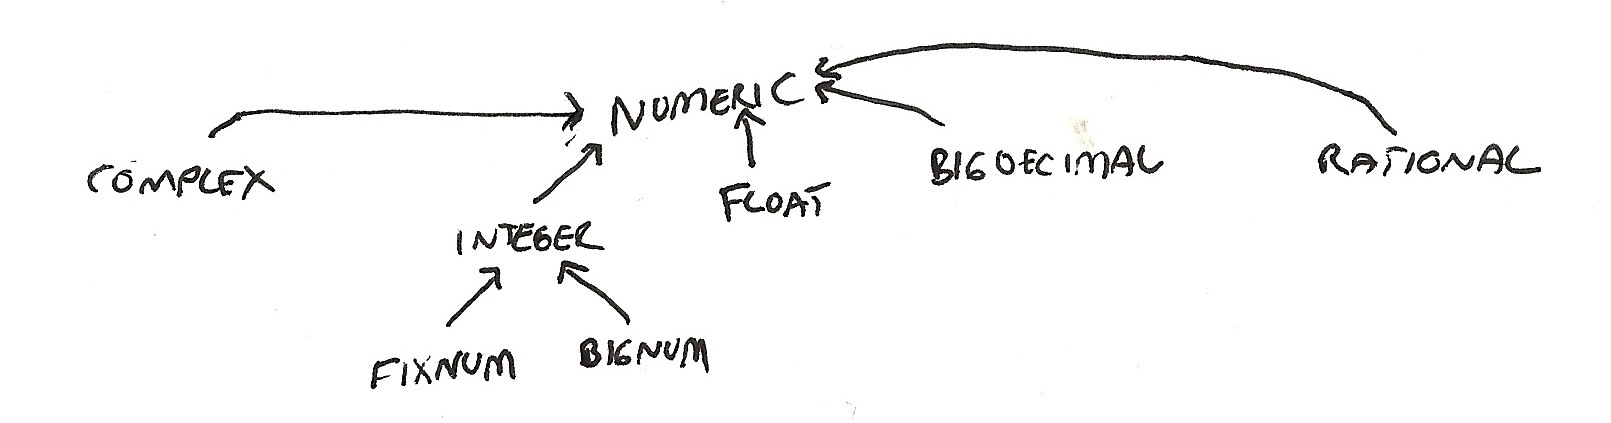 NUMERIC
COMPLEX
BIGDECIMAL
RATIONAL
FLOAT
INTEGER
FIXNUM
BIGNUM